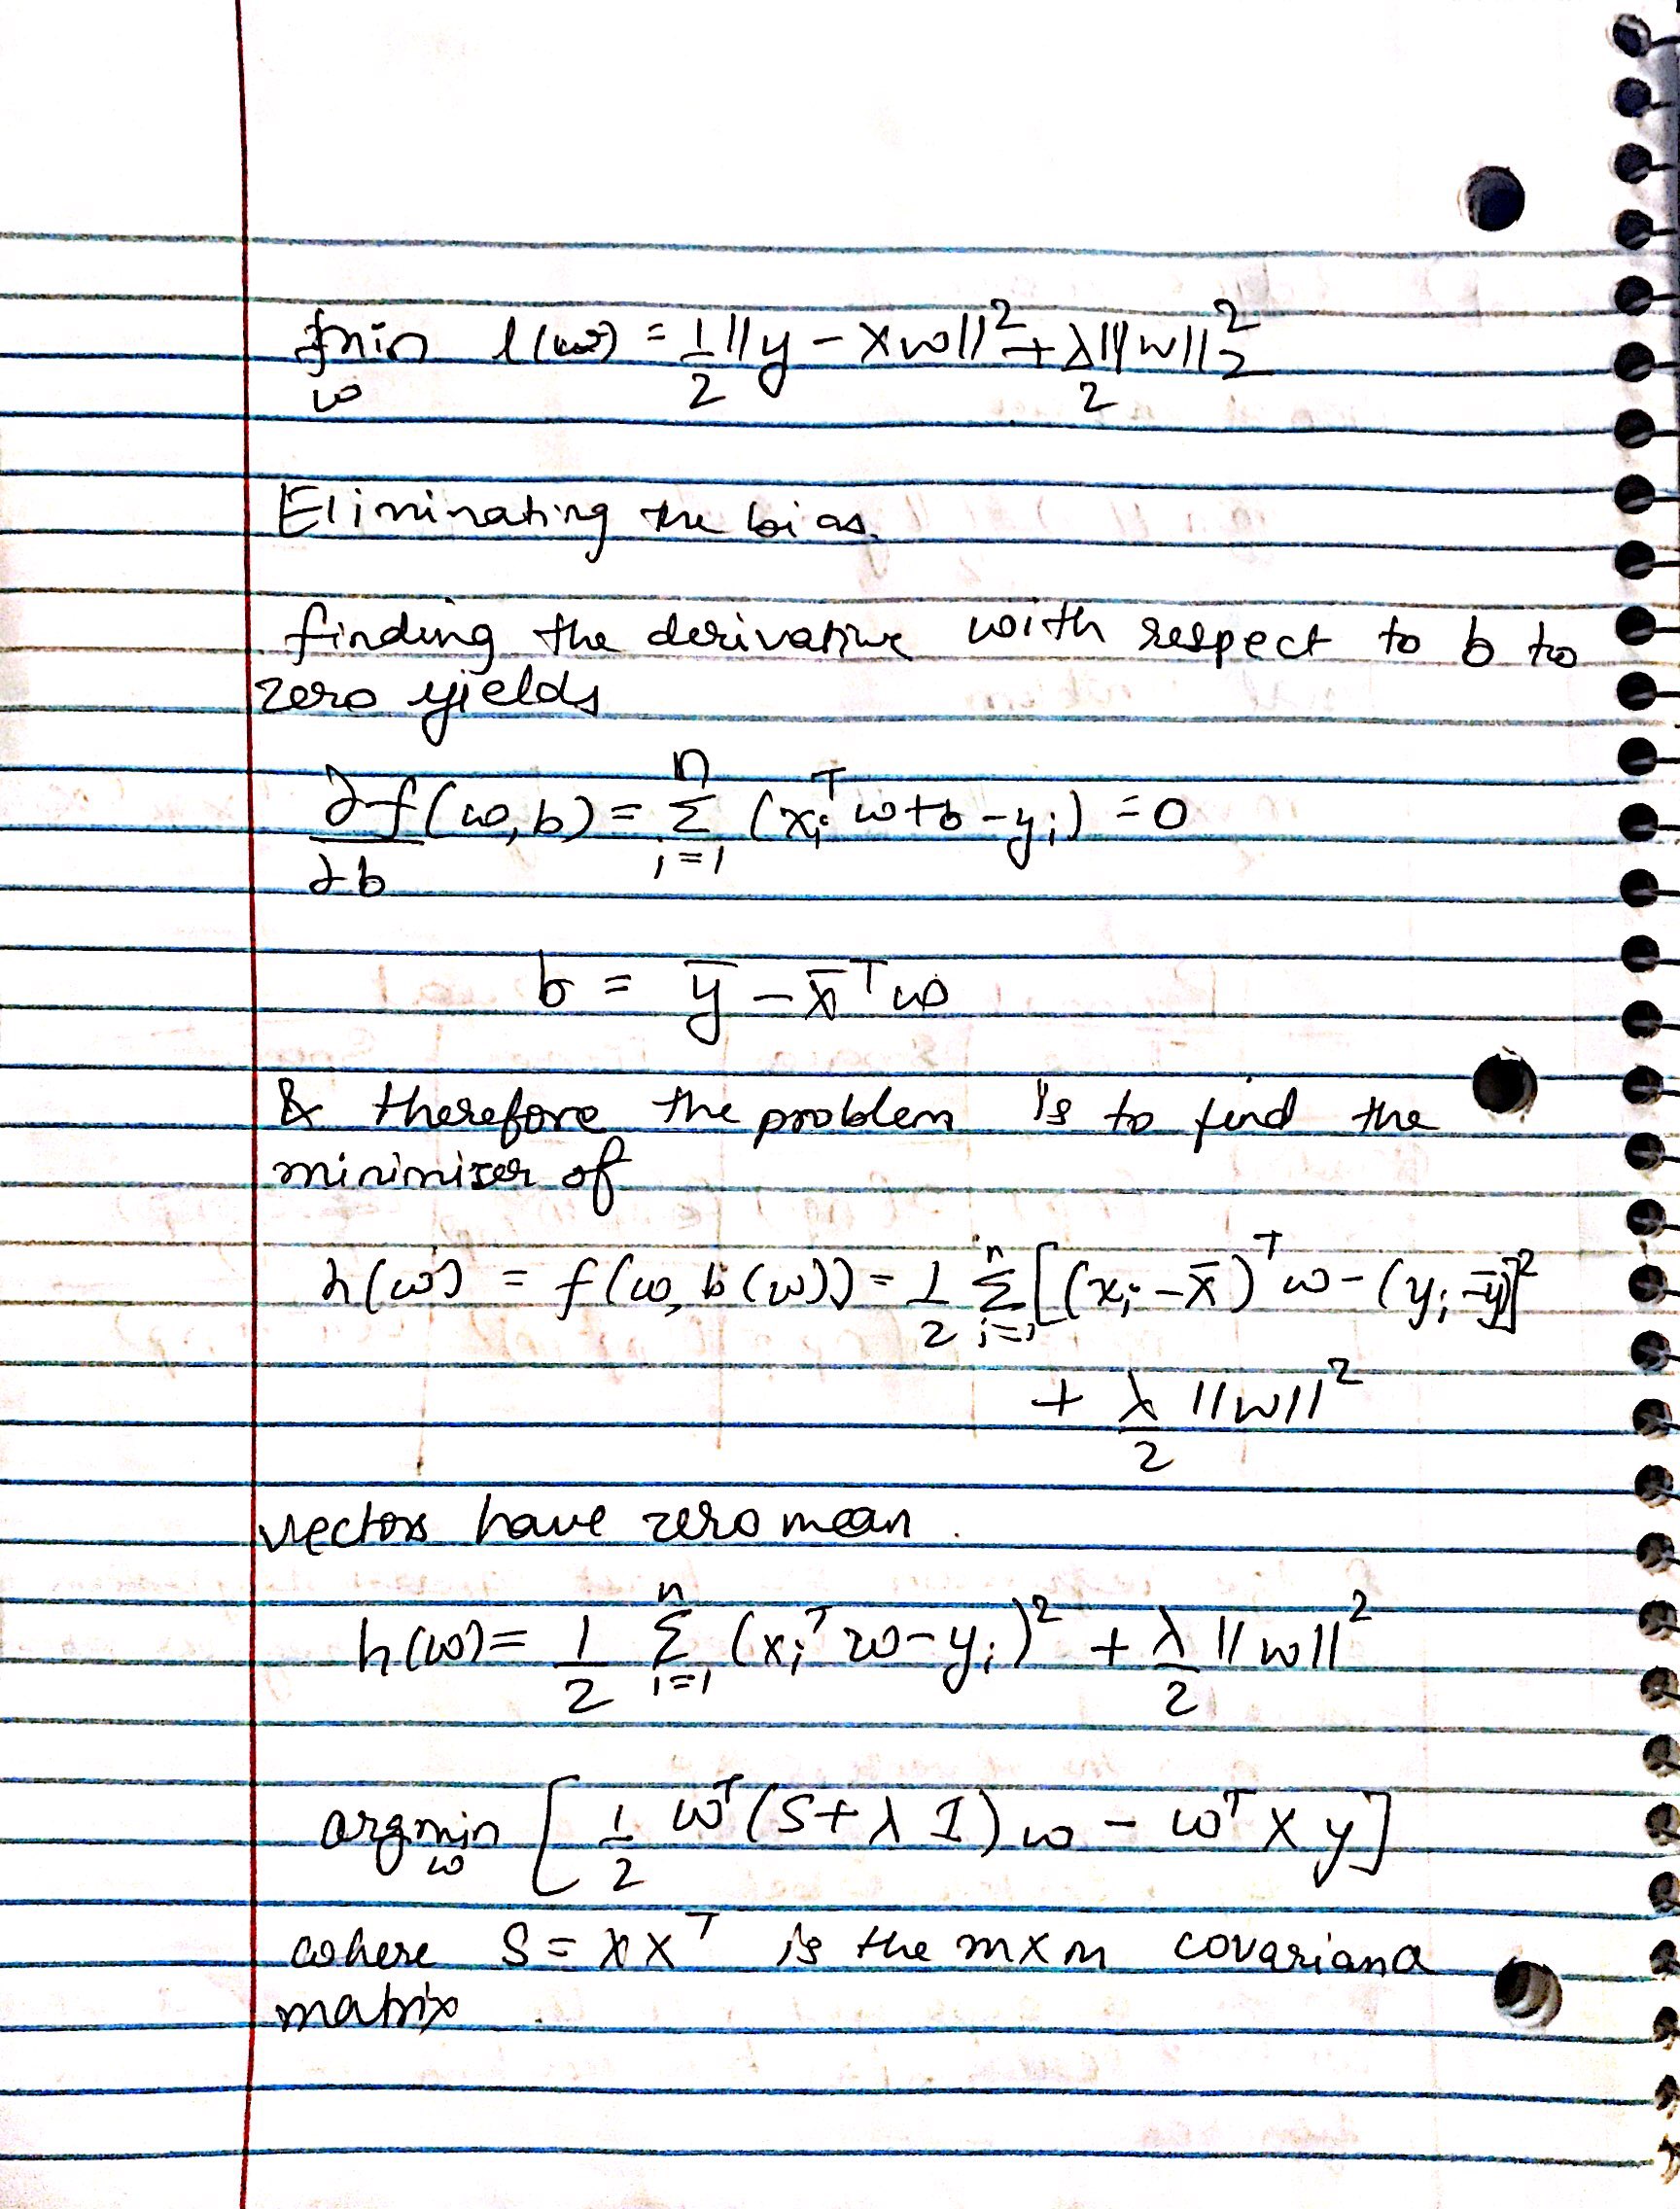 min l(w) = 1/2 ||y - Xw||² + λ/2 ||w||₂²
w
Eliminating the bias.
finding the derivative with respect to b to
zero yields
∂f/∂b (w,b) = Σ_{i=1}^{n} (xᵢᵀ w + b - yᵢ) = 0
b = ȳ - x̄ᵀ w
& therefore the problem is to find the
minimizer of
h(w) = f(w, b(w)) = 1/2 Σ_{i=1}^{n} [(xᵢ - x̄)ᵀ w - (yᵢ - ȳ)]²
+ λ/2 ||w||²
vectors have zero mean.
h(w) = 1/2 Σ_{i=1}^{n} (xᵢᵀ w - yᵢ)² + λ/2 ||w||²
argmin_w [ 1/2 wᵀ (S + λ I) w - wᵀ X y ]
where S = X Xᵀ is the m x m covariance
matrix.